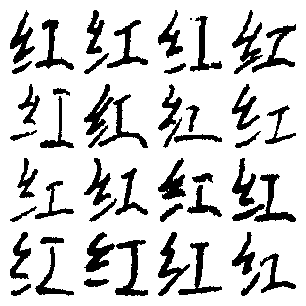 红红红红
红红红红
红红红红
红红红红